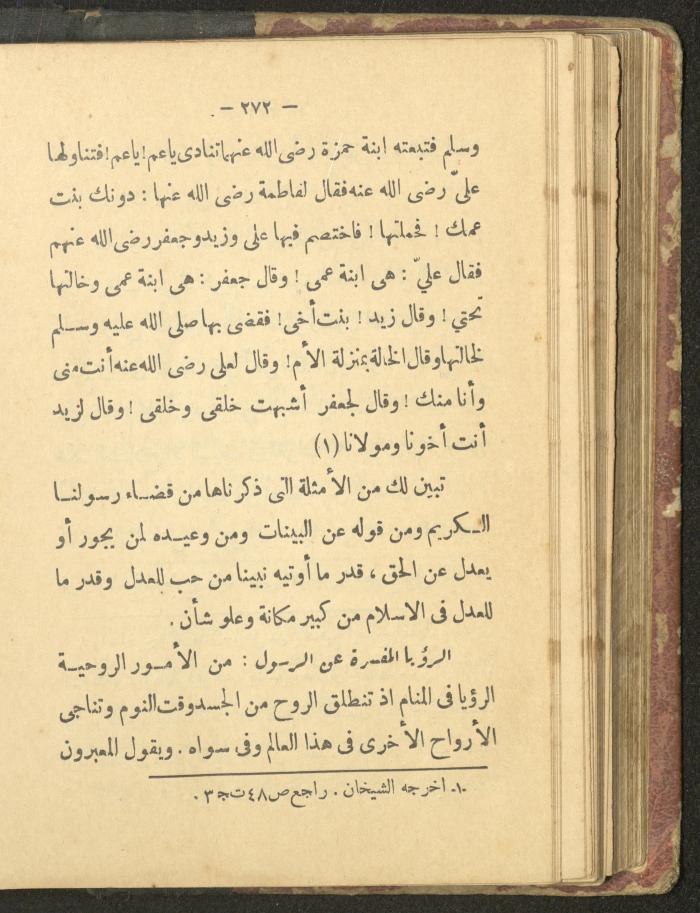 — ٢٧٢ —
وسلم فتبعته ابنة حمزة رضى الله عنهما تنادى ياعم! ياعم! فتناولها
علىّ رضى الله عنه فقال لفاطمة رضى الله عنها : دونك بنت
عمك ! فحملتها ! فاختصم فيها على وزيد وجعفر رضى الله عنهم
فقال عليّ : هى ابنة عمى ! وقال جعفر : هى ابنة عمى وخالتها
تحتي ! وقال زيد ! بنت أخى ! فقضى بها صلى الله عليه وسلم
لخالتها وقال الخالة بمنزلة الأم ! وقال لعلى رضى الله عنه أنت منى
وأنا منك ! وقال لجعفر أشبهت خلقى وخلقى ! وقال لزيد
أنت أخونا ومولانا (١)
تبين لك من الأمثلة التى ذكرناها من قضاء رسولنا
الكريم ومن قوله عن البينات ومن وعيده لمن يجور أو
يعدل عن الحق ، قدر ما أوتيه نبينا من حب للعدل وقدر ما
للعدل فى الاسلام من كبير مكانة وعلو شأن .
الرؤيا المفسرة عن الرسول : من الأمور الروحية
الرؤيا فى المنام اذ تنطلق الروح من الجسد وقت النوم وتناجى
الأرواح الأخرى فى هذا العالم وفى سواه . ويقول المعبرون
-١- اخرجه الشيخان . راجع ص ٤٨ ت ج ٣ .